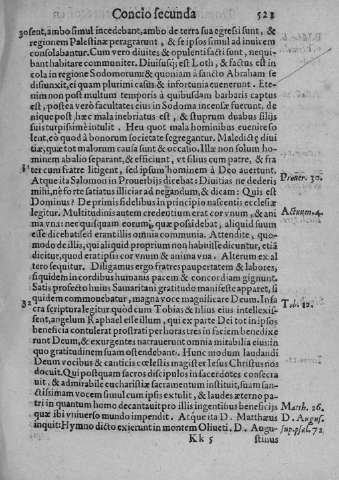 Concio secunda 521
rosent, ambo simul incedebant, ambo de terra sua egressi sunt, &
regionem Palestinæ peragrarunt, & se ipsos simul ad inuicem
consolabantur. Cum vero diuites & opulenti facti sunt, nequi-
bant habitare communiter. Diuisusq; est Loth, & factus est in
cola in regione Sodomorum: & quoniam à sancto Abraham se
disiunxit, ei quam plurimi casus & infortunia euenerunt. Ete-
nim non post multum temporis à quibusdam barbaris captus
est, postea verò facultates eius in Sodoma incensæ fuerunt, de
nique post hæc mala inebriatus est, & stuprum duabus filijs
suis turpissimè intulit. Heu quot mala hominibus euenire so
lent, eo quòd à bonorum societate segregantur. Maledictę diui
tiæ, quæ tot malorum causa sunt & occasio. Illæ non solum ho-
minem ab alio separant, & efficiunt, vt filius cum patre, & fra
ter cum fratre litigent, sed ipsum hominem à Deo auertunt.
Atque ita Salomon in Prouerbijs dicebat: Diuitias ne dederis Prouer. 30.
mihi, nè forte satiatus illiciar ad negandum, & dicam: Quis est
Dominus? De primis fidelibus in principio nascentis ecclesiæ
legitur. Multitudinis autem credentium erat cor vnum, & ani Actuum. 4.
ma vna: nec quisquam eorum, quæ possidebat, aliquid suum
esse dicebat: sed erant illis omnia communia. Attendite, quo-
modo de illis, qui aliquid proprium non habuisse dicuntur, etiā
dicitur, quod erat ipsis cor vnum & anima vna. Alterum ex al
tero sequitur. Diligamus ergo fratres paupertatem & labores,
siquidem in cordibus humanis pacem & concordiam gignunt.
Satis profectò huius Samaritani gratitudo manifeste apparet, si
quidem commouebatur, magna voce magnificare Deum. In sa
cra scriptura legitur quòd cum Tobias & filius eius intellexis- Tob. 12.
sent, angelum Raphael esse illum, qui ex parte Dei tot in ipsos
beneficia contulerat prostrati per horas tres in faciem benedixe
runt Deum, & exurgentes narrauerunt omnia mirabilia eius: in
quo gratitudinem suam ostendebant. Hunc modum laudandi
Deum vocibus & canticis cœlestis magister Iesus Christus nos
docuit. Qui postquam sacros discipulos in sacerdotes consecra
uit, & admirabile eucharistiæ sacramentum instituit, suam san-
ctissimam vocem simul cum ipsis extulit, & laudes æterno pa-
tri in quantum homo decantauit pro illis ingentibus beneficijs Matth. 26.
quæ ibi vniuerso mundo impendit. Atque ita D. Matthæus D. Augus.
inquit: Hymno dicto exierunt in montem Oliueti. D. Augu- sup. psal. 72.
Kk 5 stinus